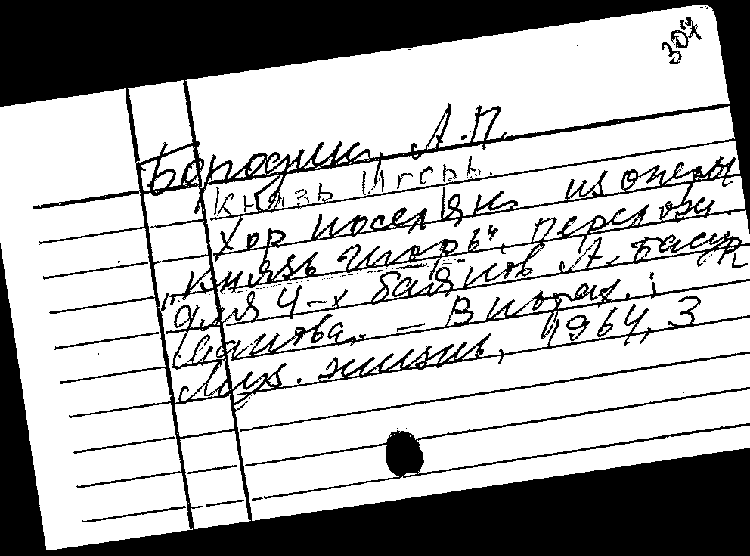 307
Бородин, А.П.
Князь Игорь.
Хор поселян из оперы
"Князь Игорь", перелож.
для 4-х баянов А. Басур
манова. — В нотах:
Муз. жизнь, 1964, 3